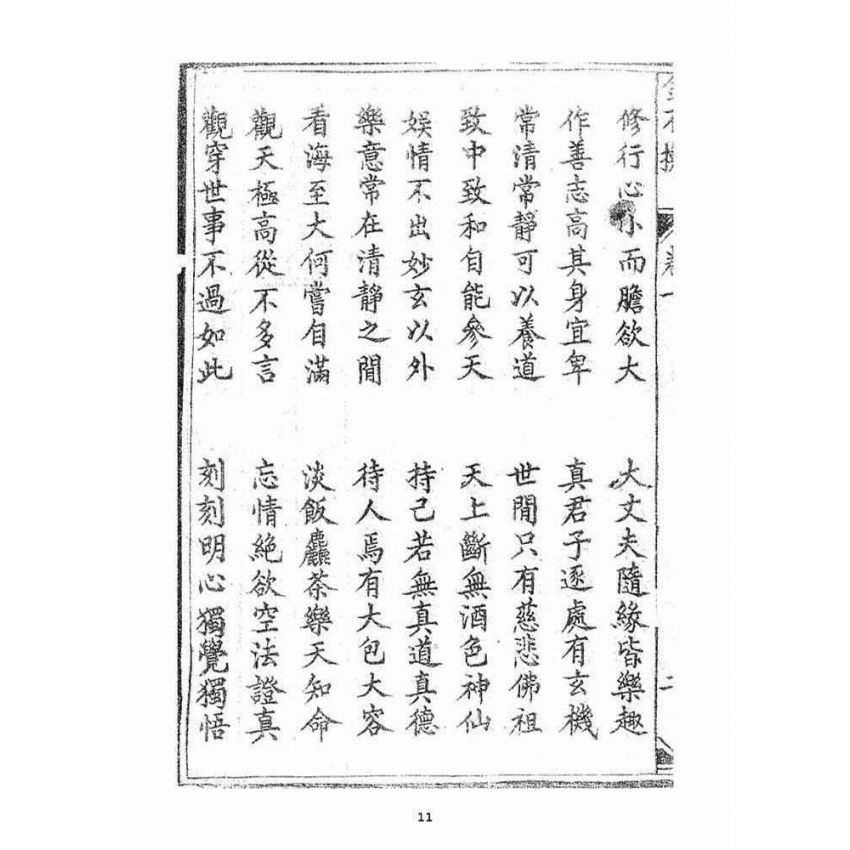 修行心小而膽欲大　大丈夫隨緣皆樂趣
作善志高其身宜卑　真君子逐處有玄機
常清常靜可以養道　世間只有慈悲佛祖
致中致和自能參天　天上斷無酒色神仙
娛情不出妙玄以外　持己若無真道真德
樂意常在清靜之間　待人焉有大包大容
看海至大何嘗自滿　淡飯麤茶樂天知命
觀天極高從不多言　忘情絕欲空法證真
觀穿世事不過如此　刻刻明心獨覺獨悟
11